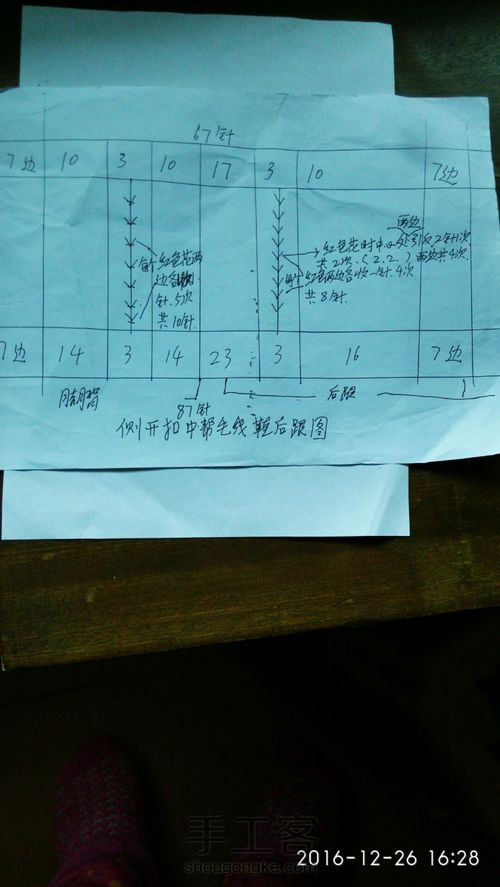 67针
7边 10 3 10 17 3 10 7边
每个红色花两
边各收一
针.5次
共10针.
两边
红色花时中心处引返2针1次
共2次.(2.2.)两边共4次
每个红色两边各收一针4次
共8针
7边 14 3 14 23 3 16 7边
87针
后跟
侧开扣中帮毛线鞋后跟图
手工客
shougongke.com
2016-12-26 16:28